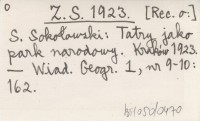 o
Z. S. 1923. [Rec. o.]
S. Sokołowski: Tatry jako
park narodowy. Kraków 1923.
— Wiad. Geogr. 1, nr 9-10:
162.